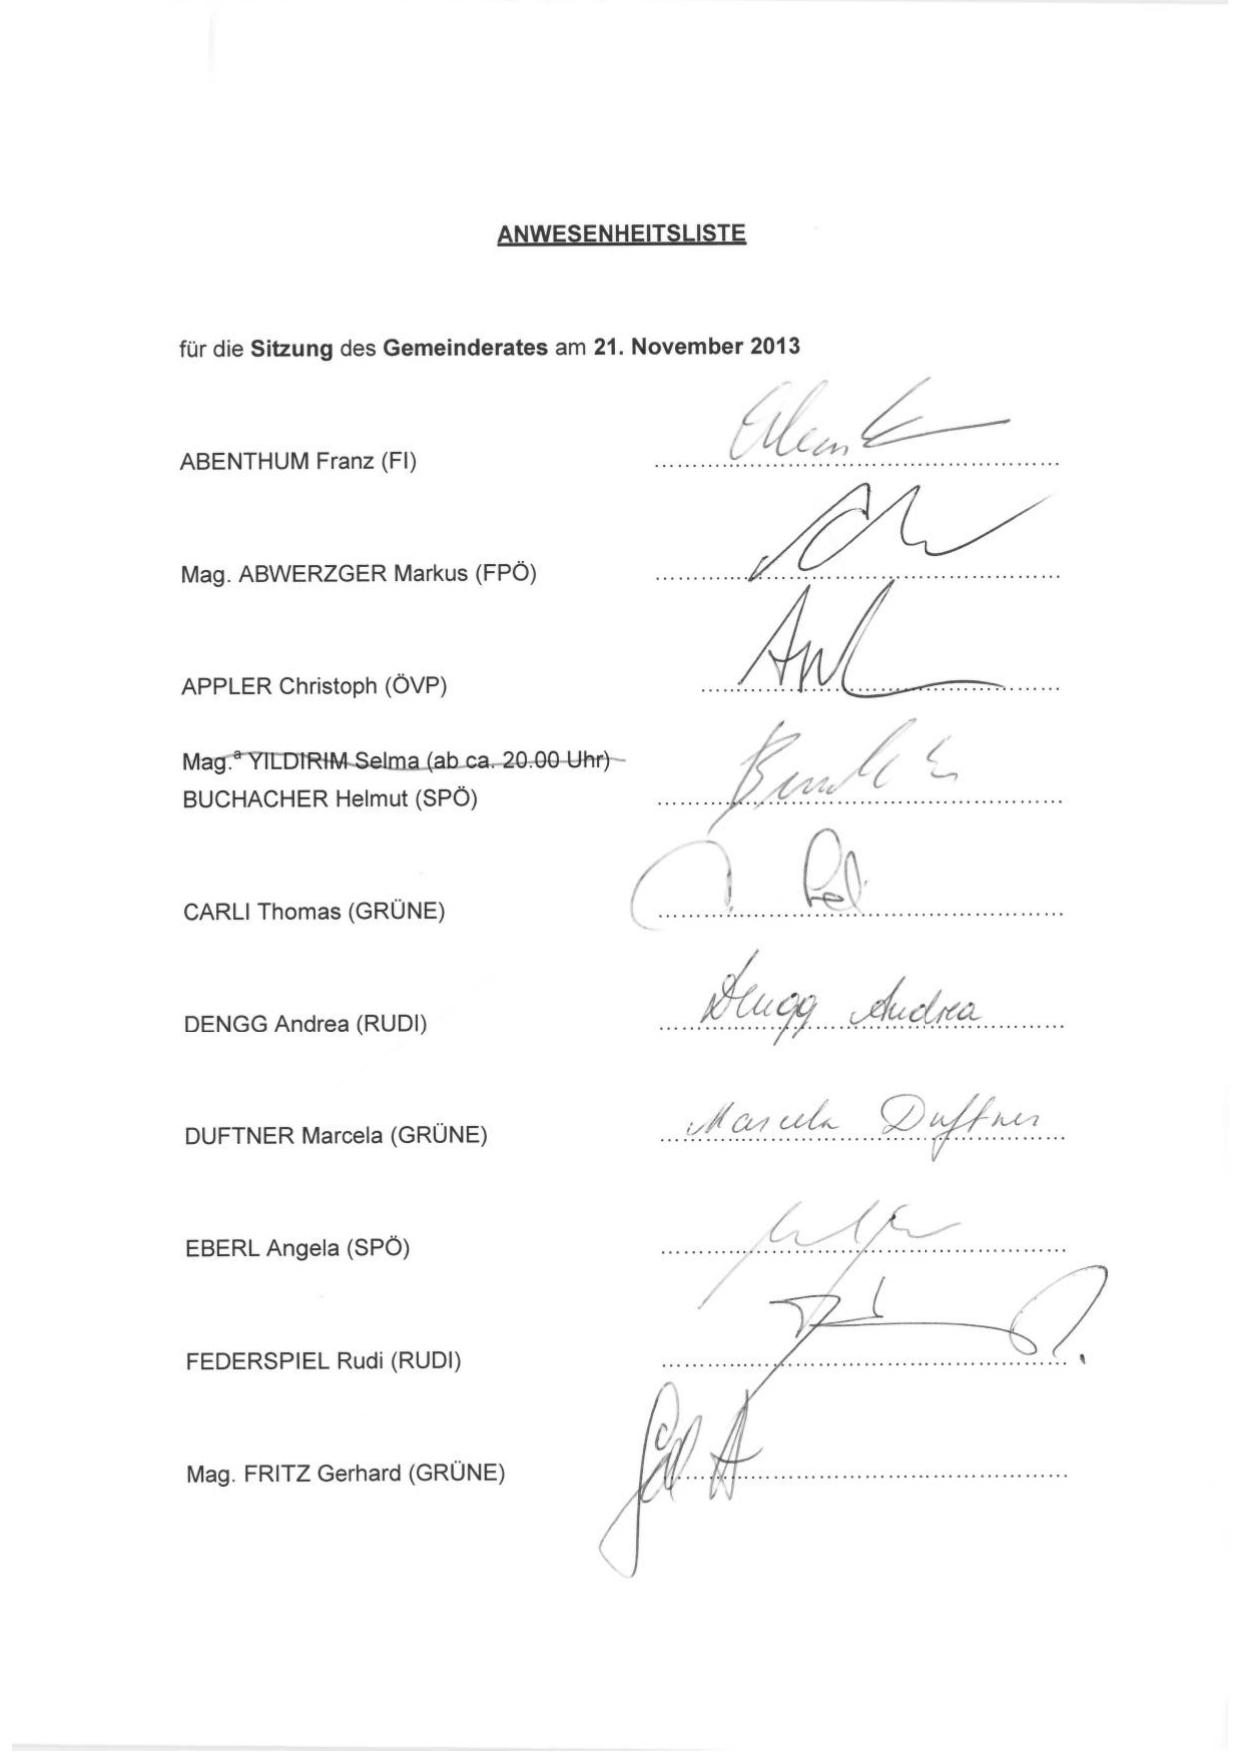 ANWESENHEITSLISTE
für die Sitzung des Gemeinderates am 21. November 2013
ABENTHUM Franz (FI) ........................................
Mag. ABWERZGER Markus (FPÖ) ........................................
APPLER Christoph (ÖVP) ........................................
Mag.ª YILDIRIM Selma (ab ca. 20.00 Uhr)
BUCHACHER Helmut (SPÖ) ........................................
CARLI Thomas (GRÜNE) ........................................
DENGG Andrea (RUDI) Dengg Andrea
DUFTNER Marcela (GRÜNE) Marcela Duftner
EBERL Angela (SPÖ) ........................................
FEDERSPIEL Rudi (RUDI) ........................................
Mag. FRITZ Gerhard (GRÜNE) ........................................